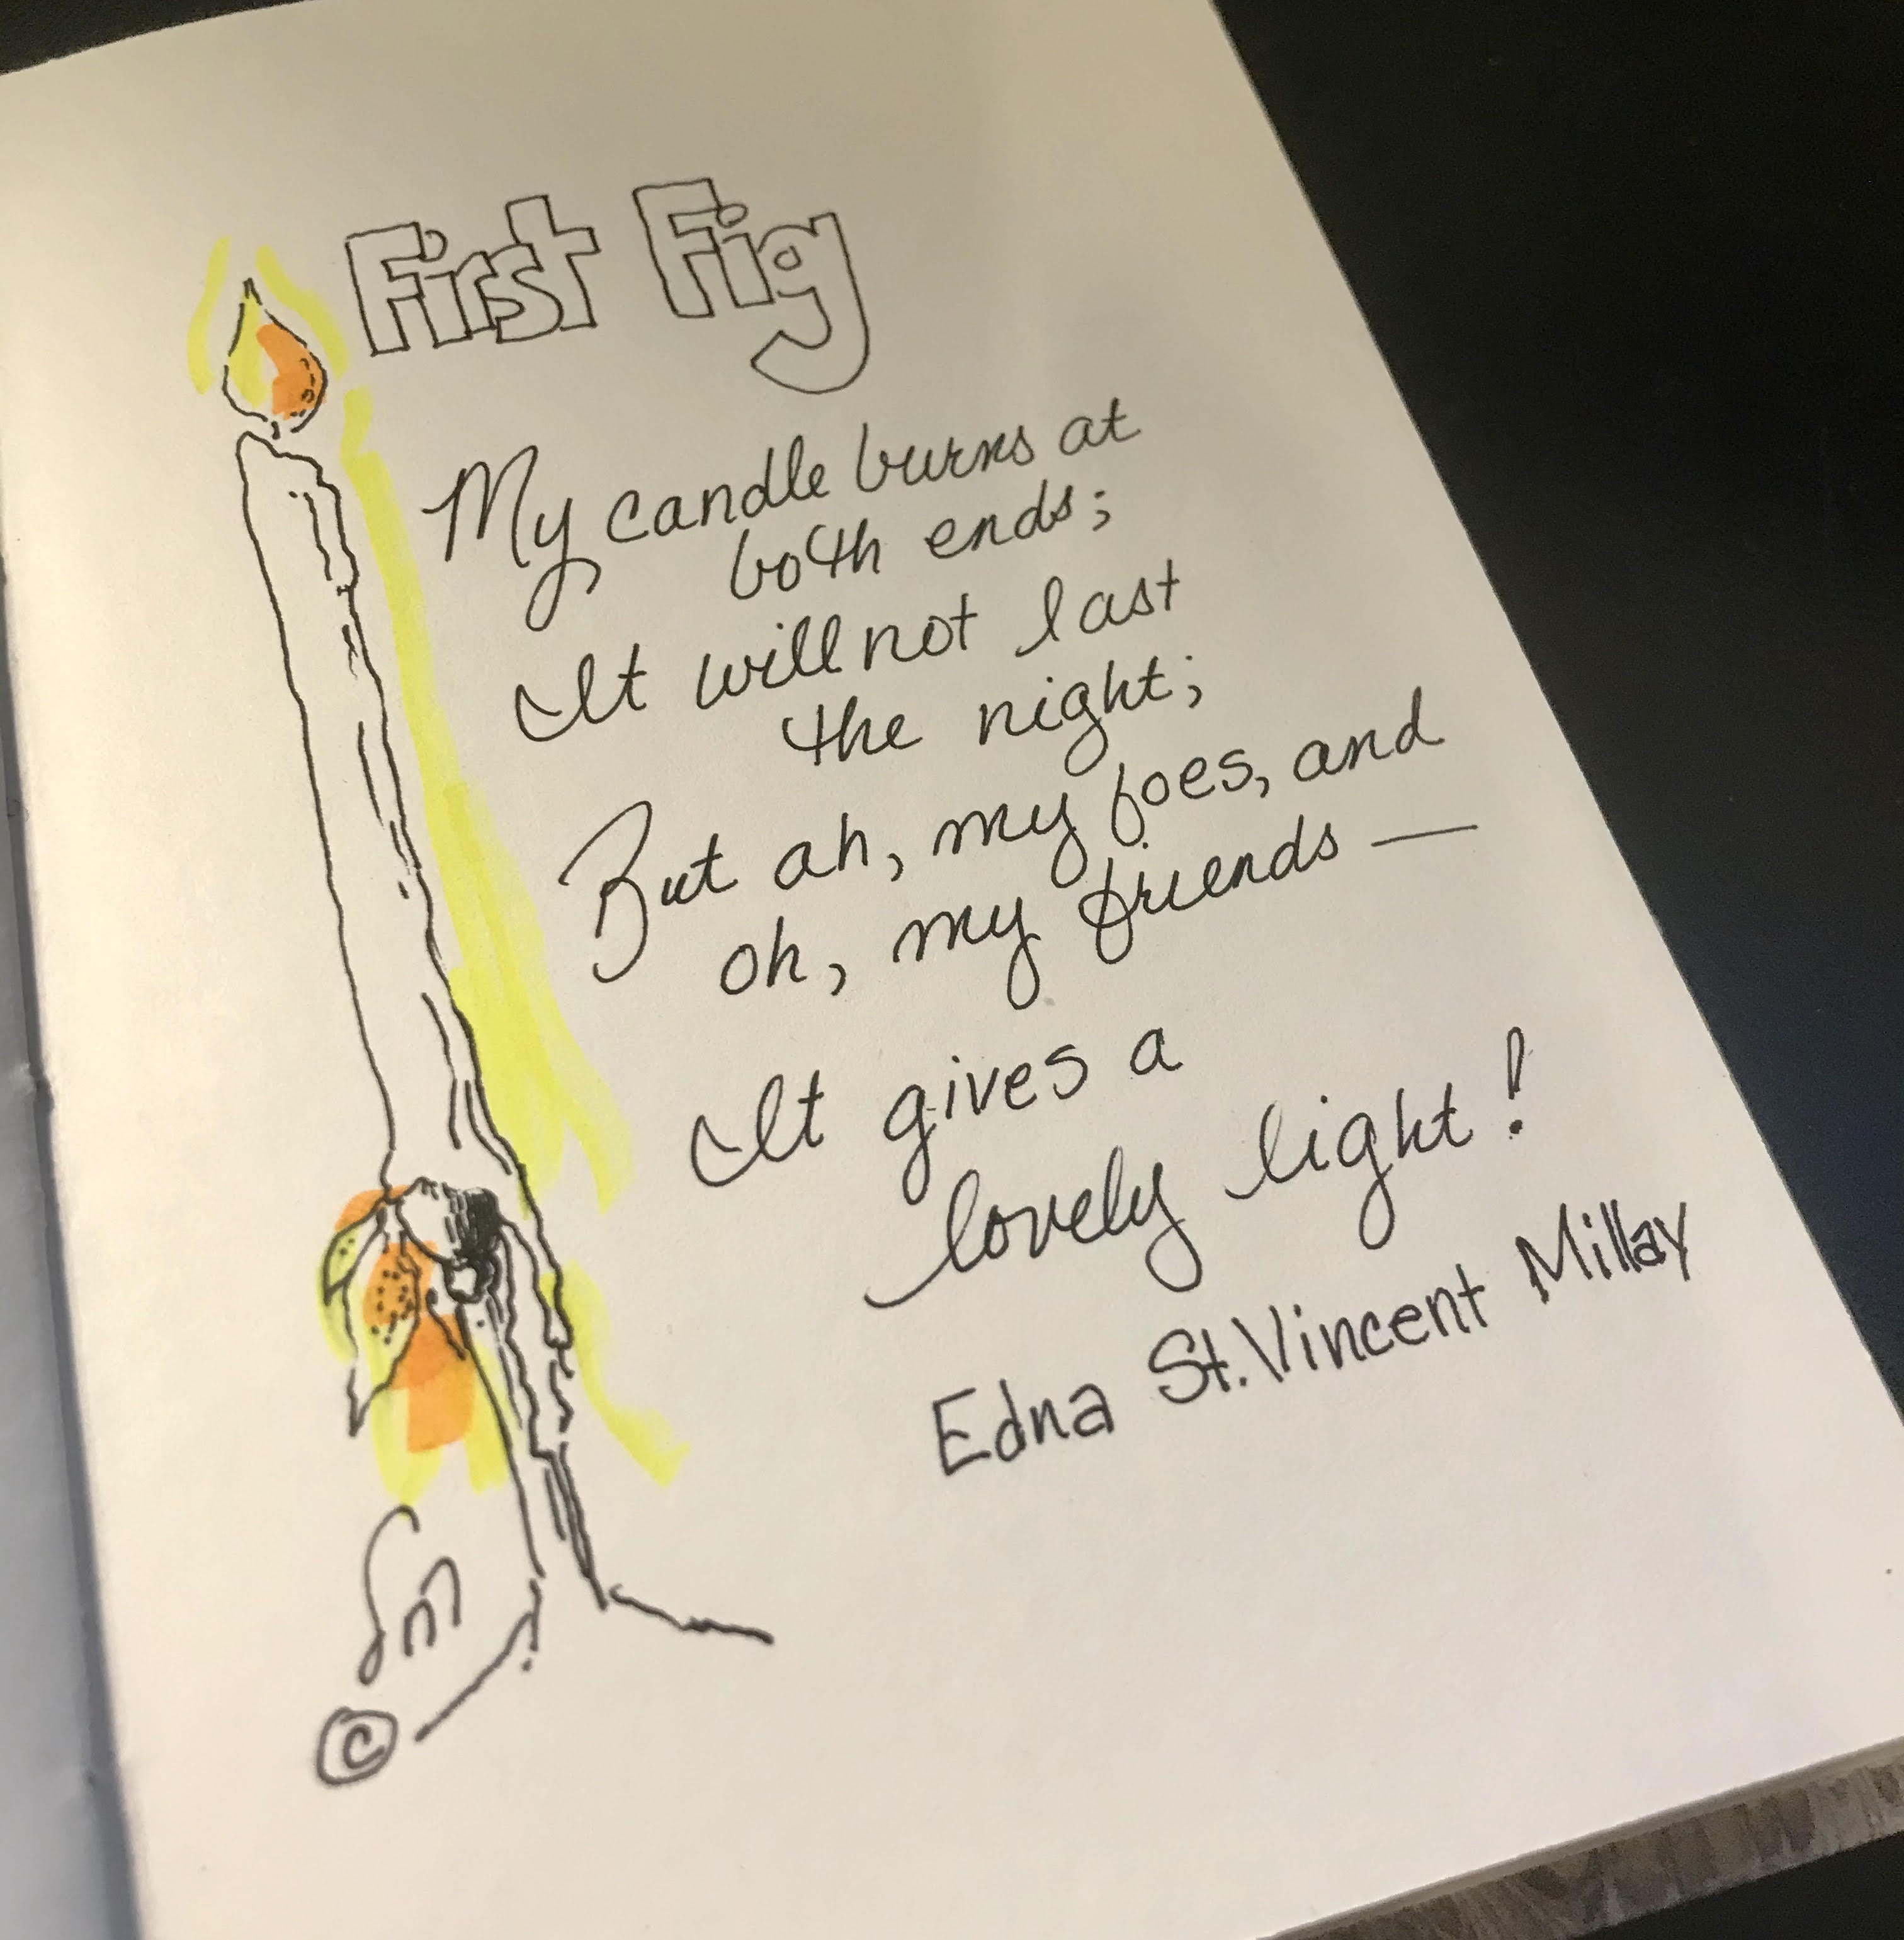 First Fig
My candle burns at
both ends;
It will not last
the night;
But ah, my foes, and
oh, my friends —
It gives a
lovely light!
Edna St. Vincent Millay
©